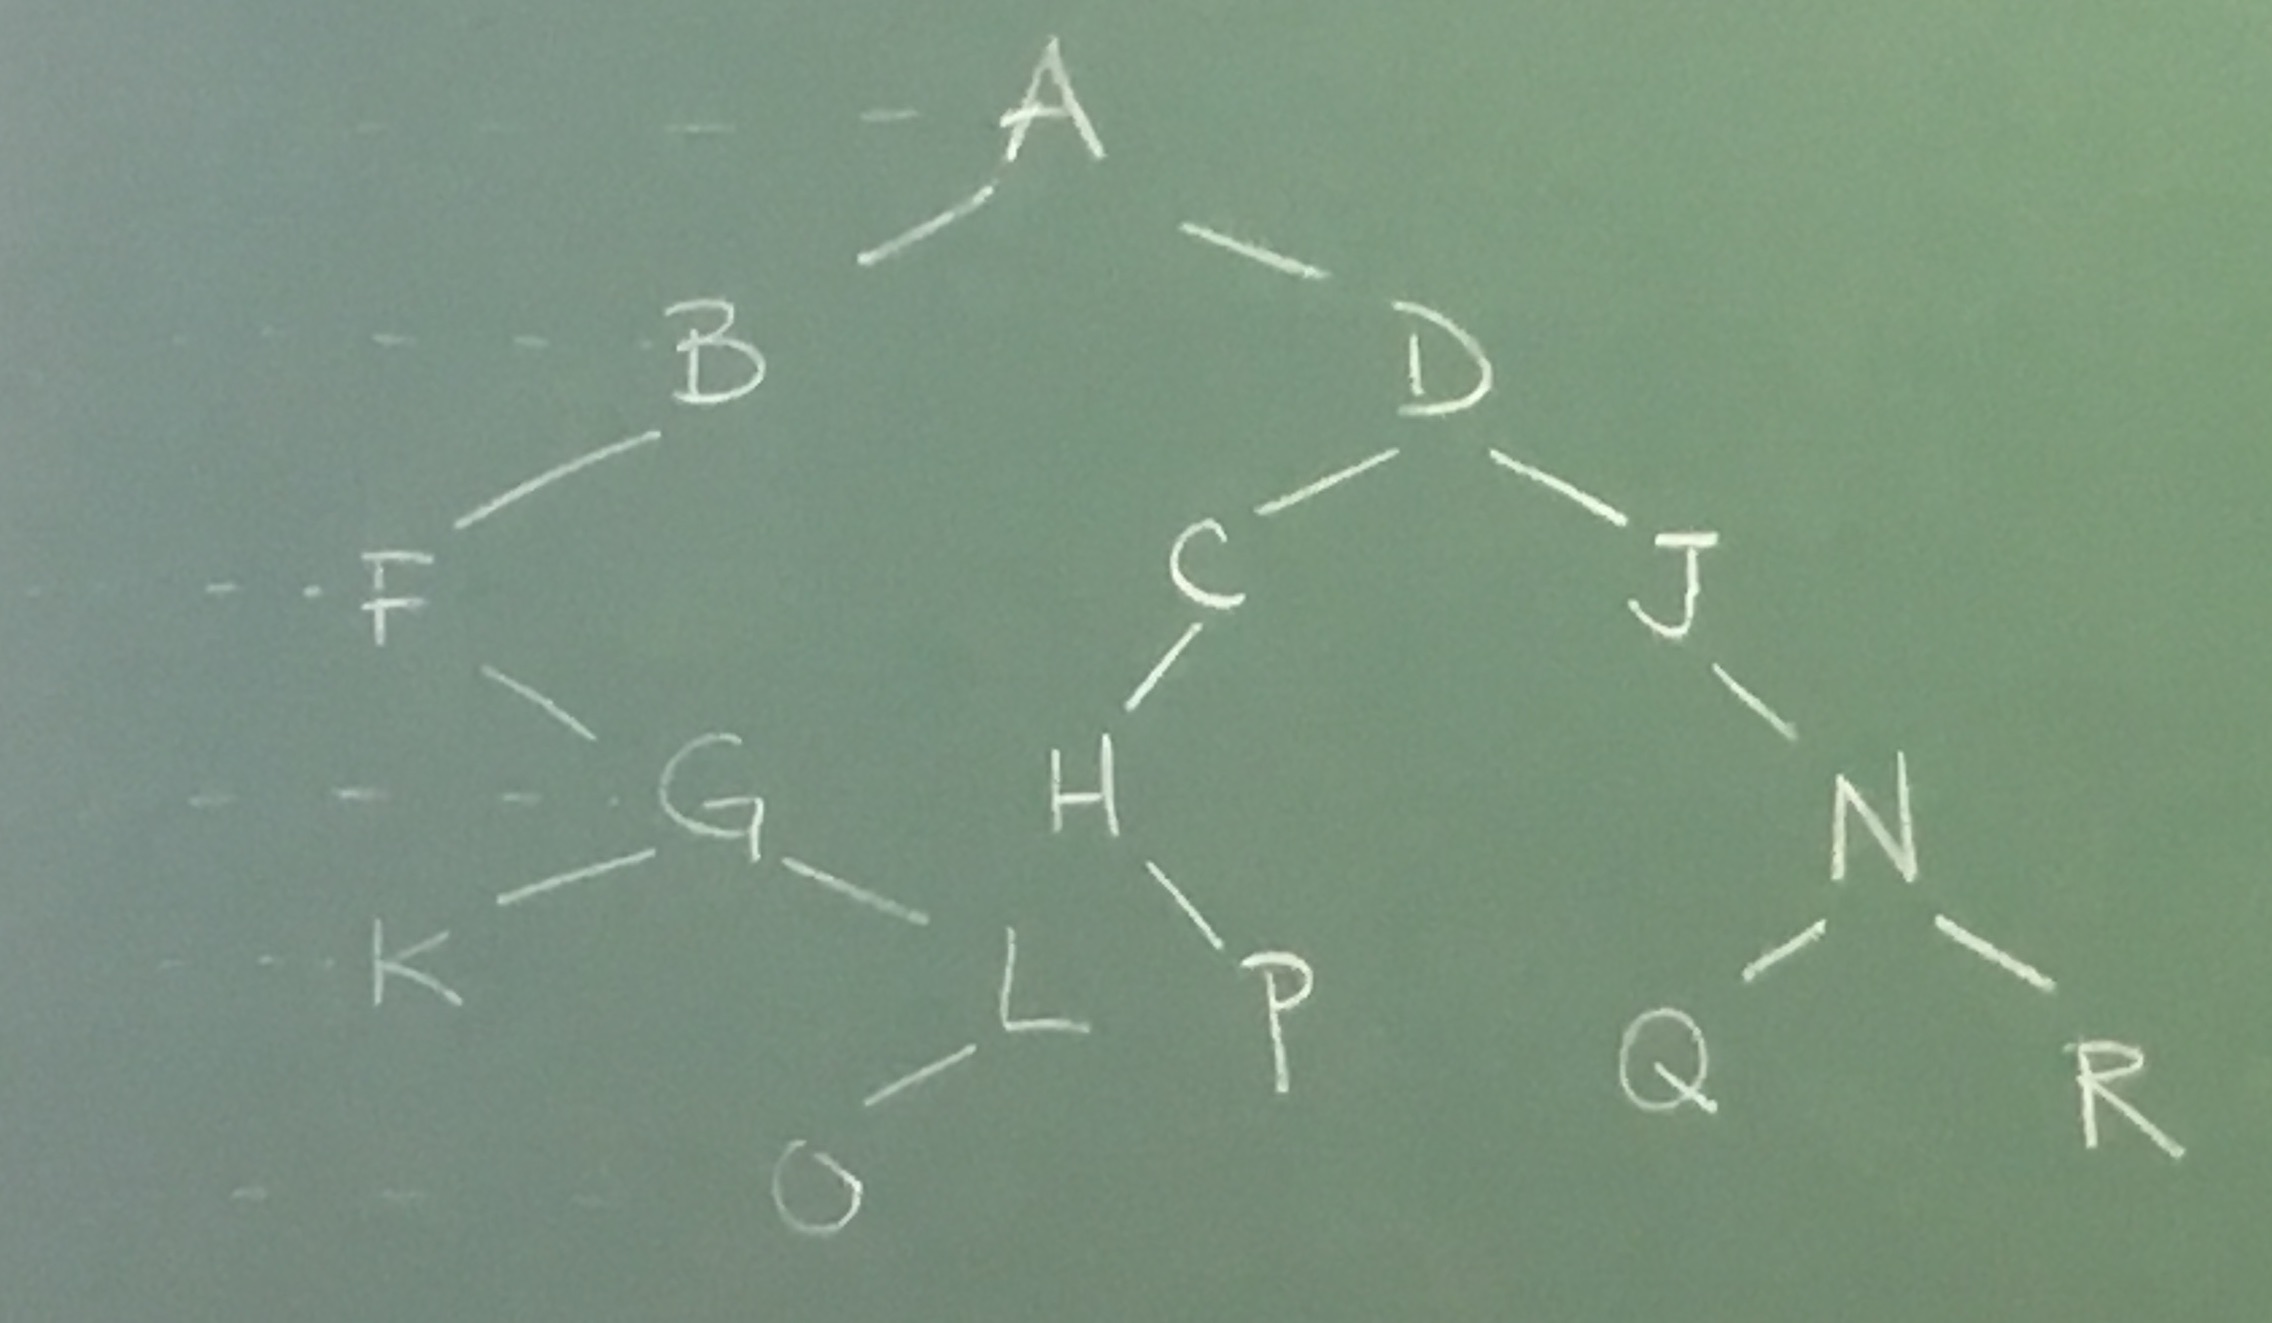 A
B D
F C J
G H N
K L P Q R
O